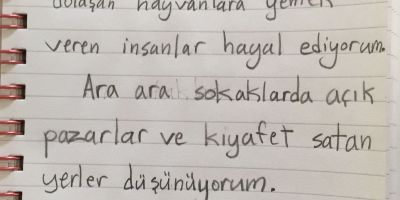 dolaşan hayvanlara yemek
veren insanlar hayal ediyorum.
Ara ara sokaklarda açık
pazarlar ve kıyafet satan
yerler düşünüyorum.